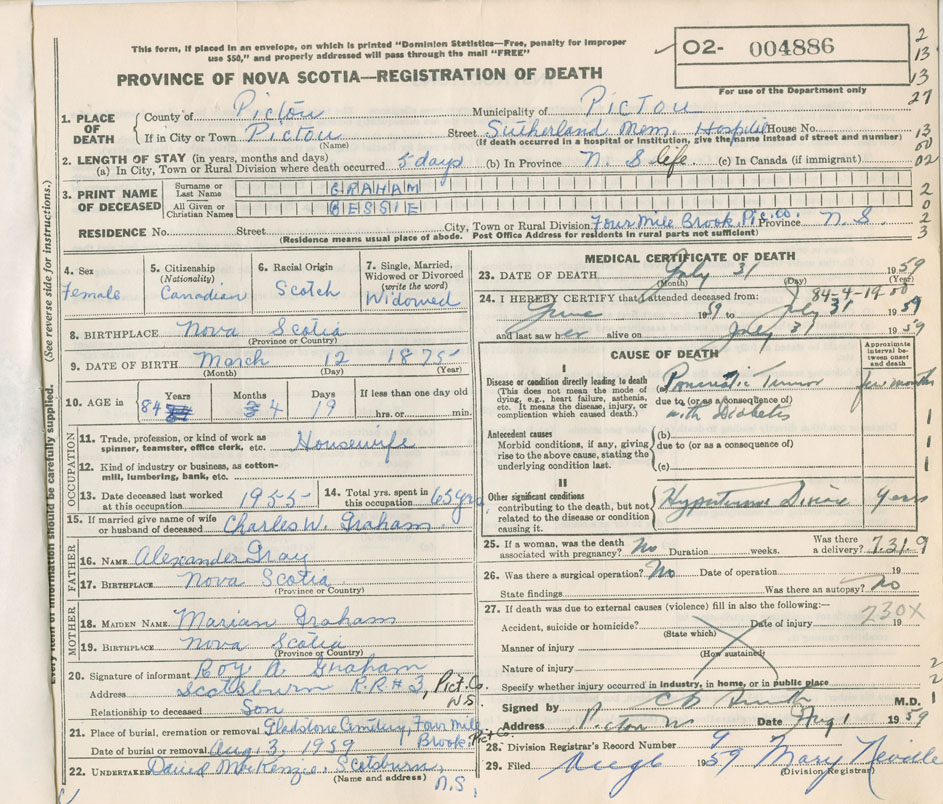 This form, if placed in an envelope, on which is printed "Dominion Statistics—Free, penalty for improper
use $50," and properly addressed will pass through the mail "FREE"
PROVINCE OF NOVA SCOTIA—REGISTRATION OF DEATH
O2- 004886
For use of the Department only
2
13
13
27
1. PLACE OF DEATH
County of Pictou Municipality of PICTOU
If in City or Town Pictou Street Sutherland Mem. Hospital House No.
(Name) (If death occurred in a hospital or institution, give the name instead of street and number)
13
00
02
2. LENGTH OF STAY (in years, months and days)
(a) In City, Town or Rural Division where death occurred 5 days (b) In Province N. S. life (c) In Canada (if immigrant)
3. PRINT NAME OF DECEASED
Surname or Last Name GRAHAM
All Given or Christian Names BESSIE
2
0
2
3
RESIDENCE No. Street City, Town or Rural Division Four Mile Brook Pic. Co. Province N. S.
(Residence means usual place of abode. Post Office Address for residents in rural parts not sufficient)
(See reverse side for instructions.)
Every item of information should be carefully supplied.
4. Sex
Female
5. Citizenship
(Nationality)
Canadian
6. Racial Origin
Scotch
7. Single, Married,
Widowed or Divorced
(write the word)
Widowed
8. BIRTHPLACE Nova Scotia
(Province or Country)
9. DATE OF BIRTH March 12 1875
(Month) (Day) (Year)
10. AGE in
Years Months Days If less than one day old
84 4 19 hrs. or min.
OCCUPATION
11. Trade, profession, or kind of work as
spinner, teamster, office clerk, etc. Housewife
12. Kind of industry or business, as cotton-
mill, lumbering, bank, etc.
13. Date deceased last worked
at this occupation 1955
14. Total yrs. spent in
this occupation 65 yrs
15. If married give name of wife
or husband of deceased Charles W. Graham
FATHER
16. NAME Alexander Gray
17. BIRTHPLACE Nova Scotia
(Province or Country)
MOTHER
18. MAIDEN NAME Marian Graham
19. BIRTHPLACE Nova Scotia
(Province or Country)
20. Signature of informant Roy A. Graham
Address Scotsburn R.R # 3, Pict. Co. N.S.
Relationship to deceased Son
21. Place of burial, cremation or removal Gladstone Cemetery, Four Mile
Brook, Pict Co.
Date of burial or removal Aug 3, 1959
22. UNDERTAKER David MacKenzie, Scotsburn,
(Name and address) N.S.
MEDICAL CERTIFICATE OF DEATH
23. DATE OF DEATH July 31 1959
(Month) (Day) (Year)
84-4-19
24. I HEREBY CERTIFY that I attended deceased from:
June 1959 to July 31 1959
and last saw her alive on July 31 1959
CAUSE OF DEATH
Approximate
interval be-
tween onset
and death
I
Disease or condition directly leading to death
(This does not mean the mode of
dying, e.g., heart failure, asthenia,
etc. It means the disease, injury, or
complication which caused death.)
(a) Pancreatic Tumor few months
due to (or as a consequence of)
with Diabetes
Antecedent causes
Morbid conditions, if any, giving
rise to the above cause, stating the
underlying condition last.
(b)
due to (or as a consequence of)
(c)
1
1
1
II
Other significant conditions
contributing to the death, but not
related to the disease or condition
causing it.
Hypertensive Disease years
25. If a woman, was the death
associated with pregnancy? No Duration weeks.
Was there
a delivery?
7.31.9
26. Was there a surgical operation? No Date of operation 19
State findings Was there an autopsy? No
27. If death was due to external causes (violence) fill in also the following:—
230X
Accident, suicide or homicide? Date of injury 19
(State which)
Manner of injury
(How sustained)
Nature of injury
Specify whether injury occurred in industry, in home, or in public place
2
2
1
Signed by C B Smith M.D.
Address Pictou NS Date Aug 1 1959
28. Division Registrar's Record Number 9
29. Filed Aug 6 1959 Mary Neville
(Division Registrar)